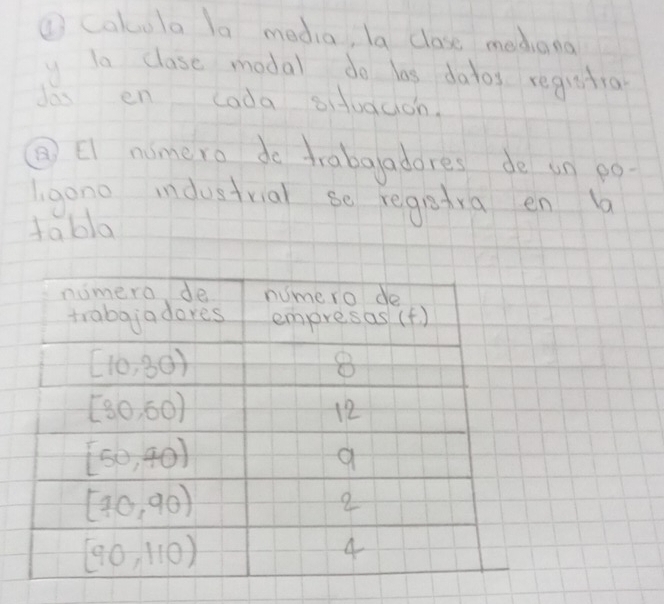 ① Calcula la media, la clase mediana
y la clase modal de los datos registra-
dos en cada situación.
Ⓐ El número de trabajadores de un po-
lígono industrial se registra en la
tabla
número de trabajadores | número de empresas (f)
[10,30) | 8
[30,50) | 12
[50,70) | 9
[70,90) | 2
[90,110) | 4